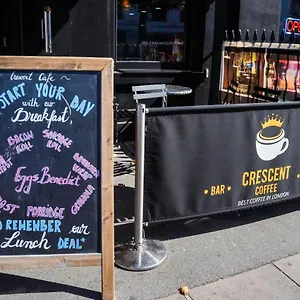 Crescent Cafe
START YOUR DAY
with our
Breakfast
BACON ROLL
SAUSAGE ROLL
Eggs Benedict
PORRIDGE
GRANOLA
REMEMBER our
Lunch DEAL
OPEN
CRESCENT
· BAR · COFFEE ·
BEST COFFEE IN LONDON